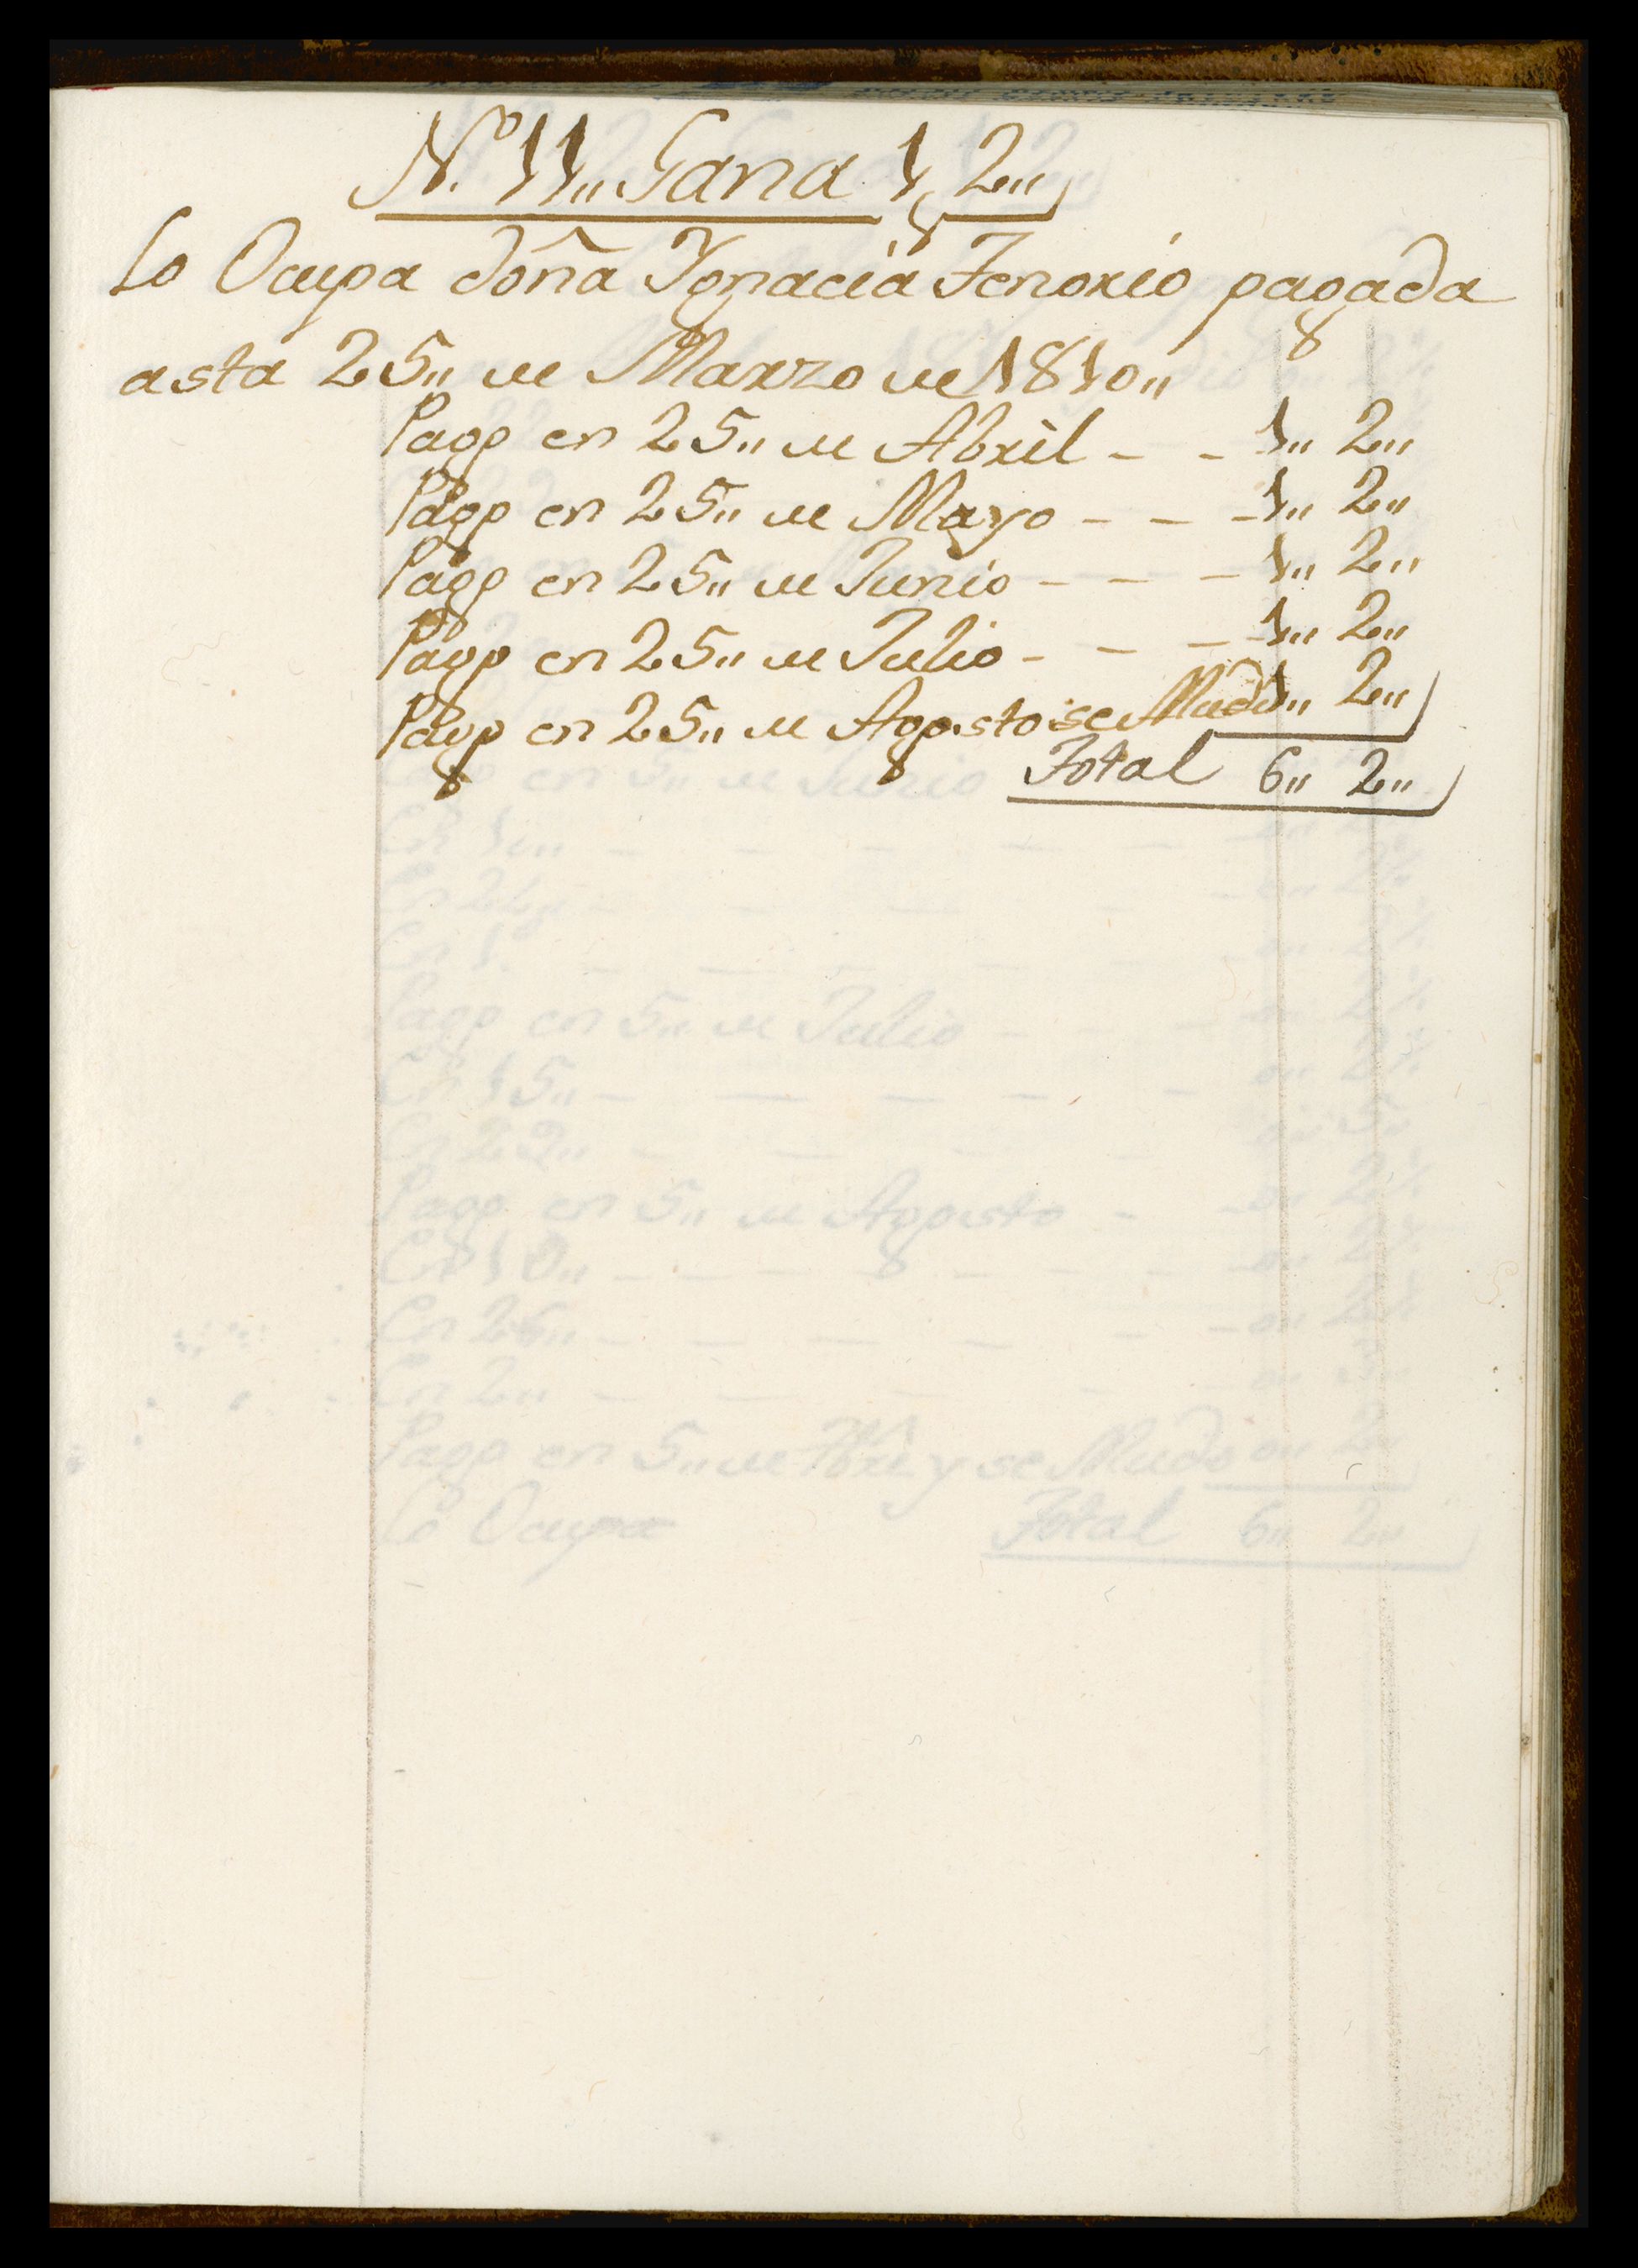 N.º 11,, Gana 1, 2,,
Lo Ocupa doña Ygnacia Tenorio pagada
asta 25,, de Marzo de 1810,,
Pago en 25,, de Abril - - 1,, 2,,
Pago en 25,, de Mayo - - - 1,, 2,,
Pago en 25,, de Junio - - - 1,, 2,,
Pago en 25,, de Julio - - - 1,, 2,,
Pago en 25,, de Agosto se Mudó 1,, 2,,
Total 6,, 2,,